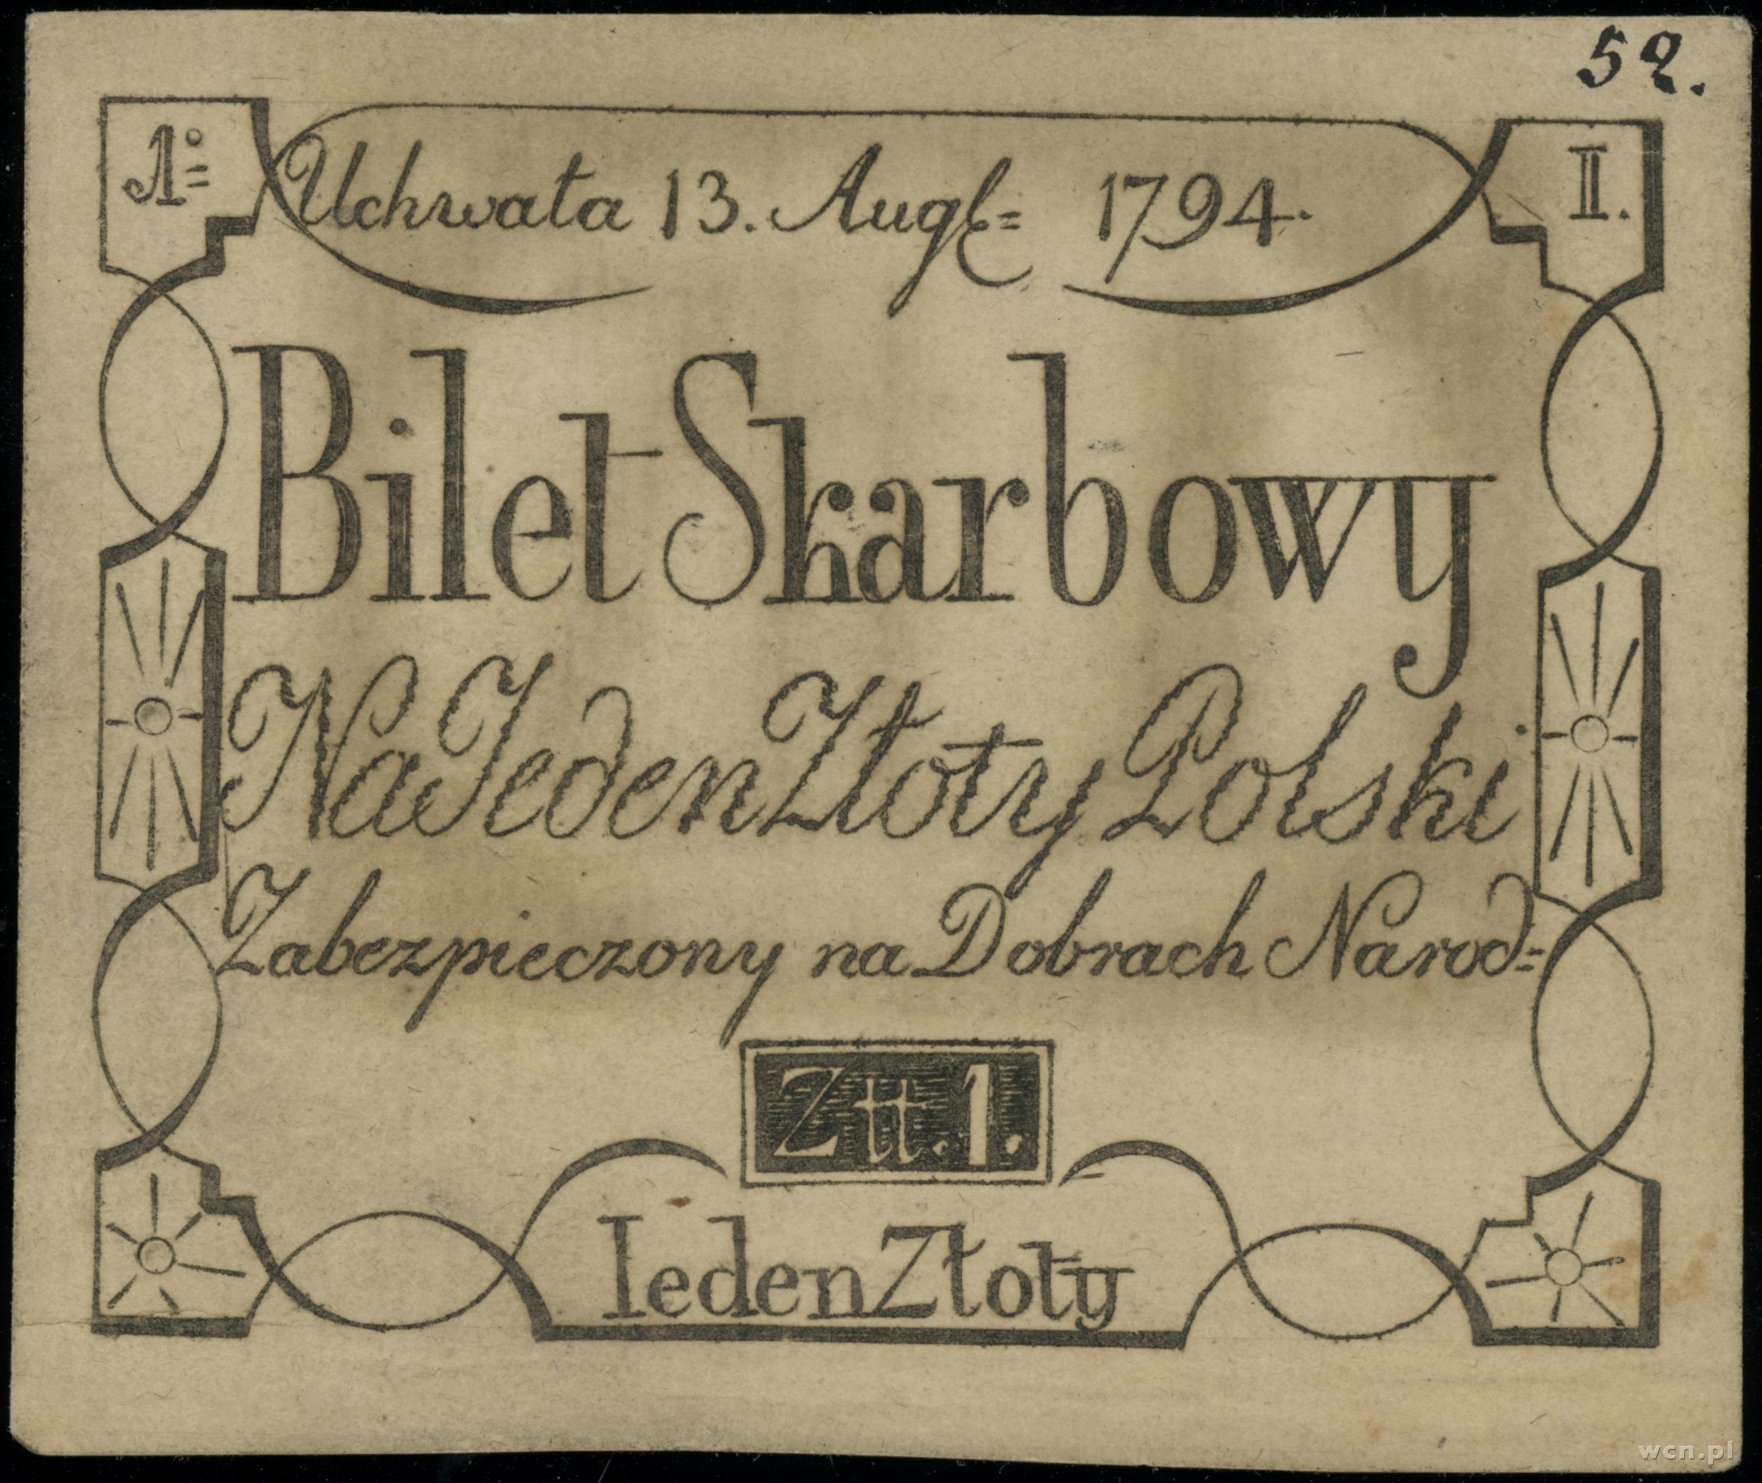 52.
1o= Uchwała 13. Augt= 1794. II.
Bilet Skarbowy
Na Jeden Złoty Polski
Zabezpieczony na Dobrach Narod=
Złł.1.
Ieden Złoty
wcn.pl